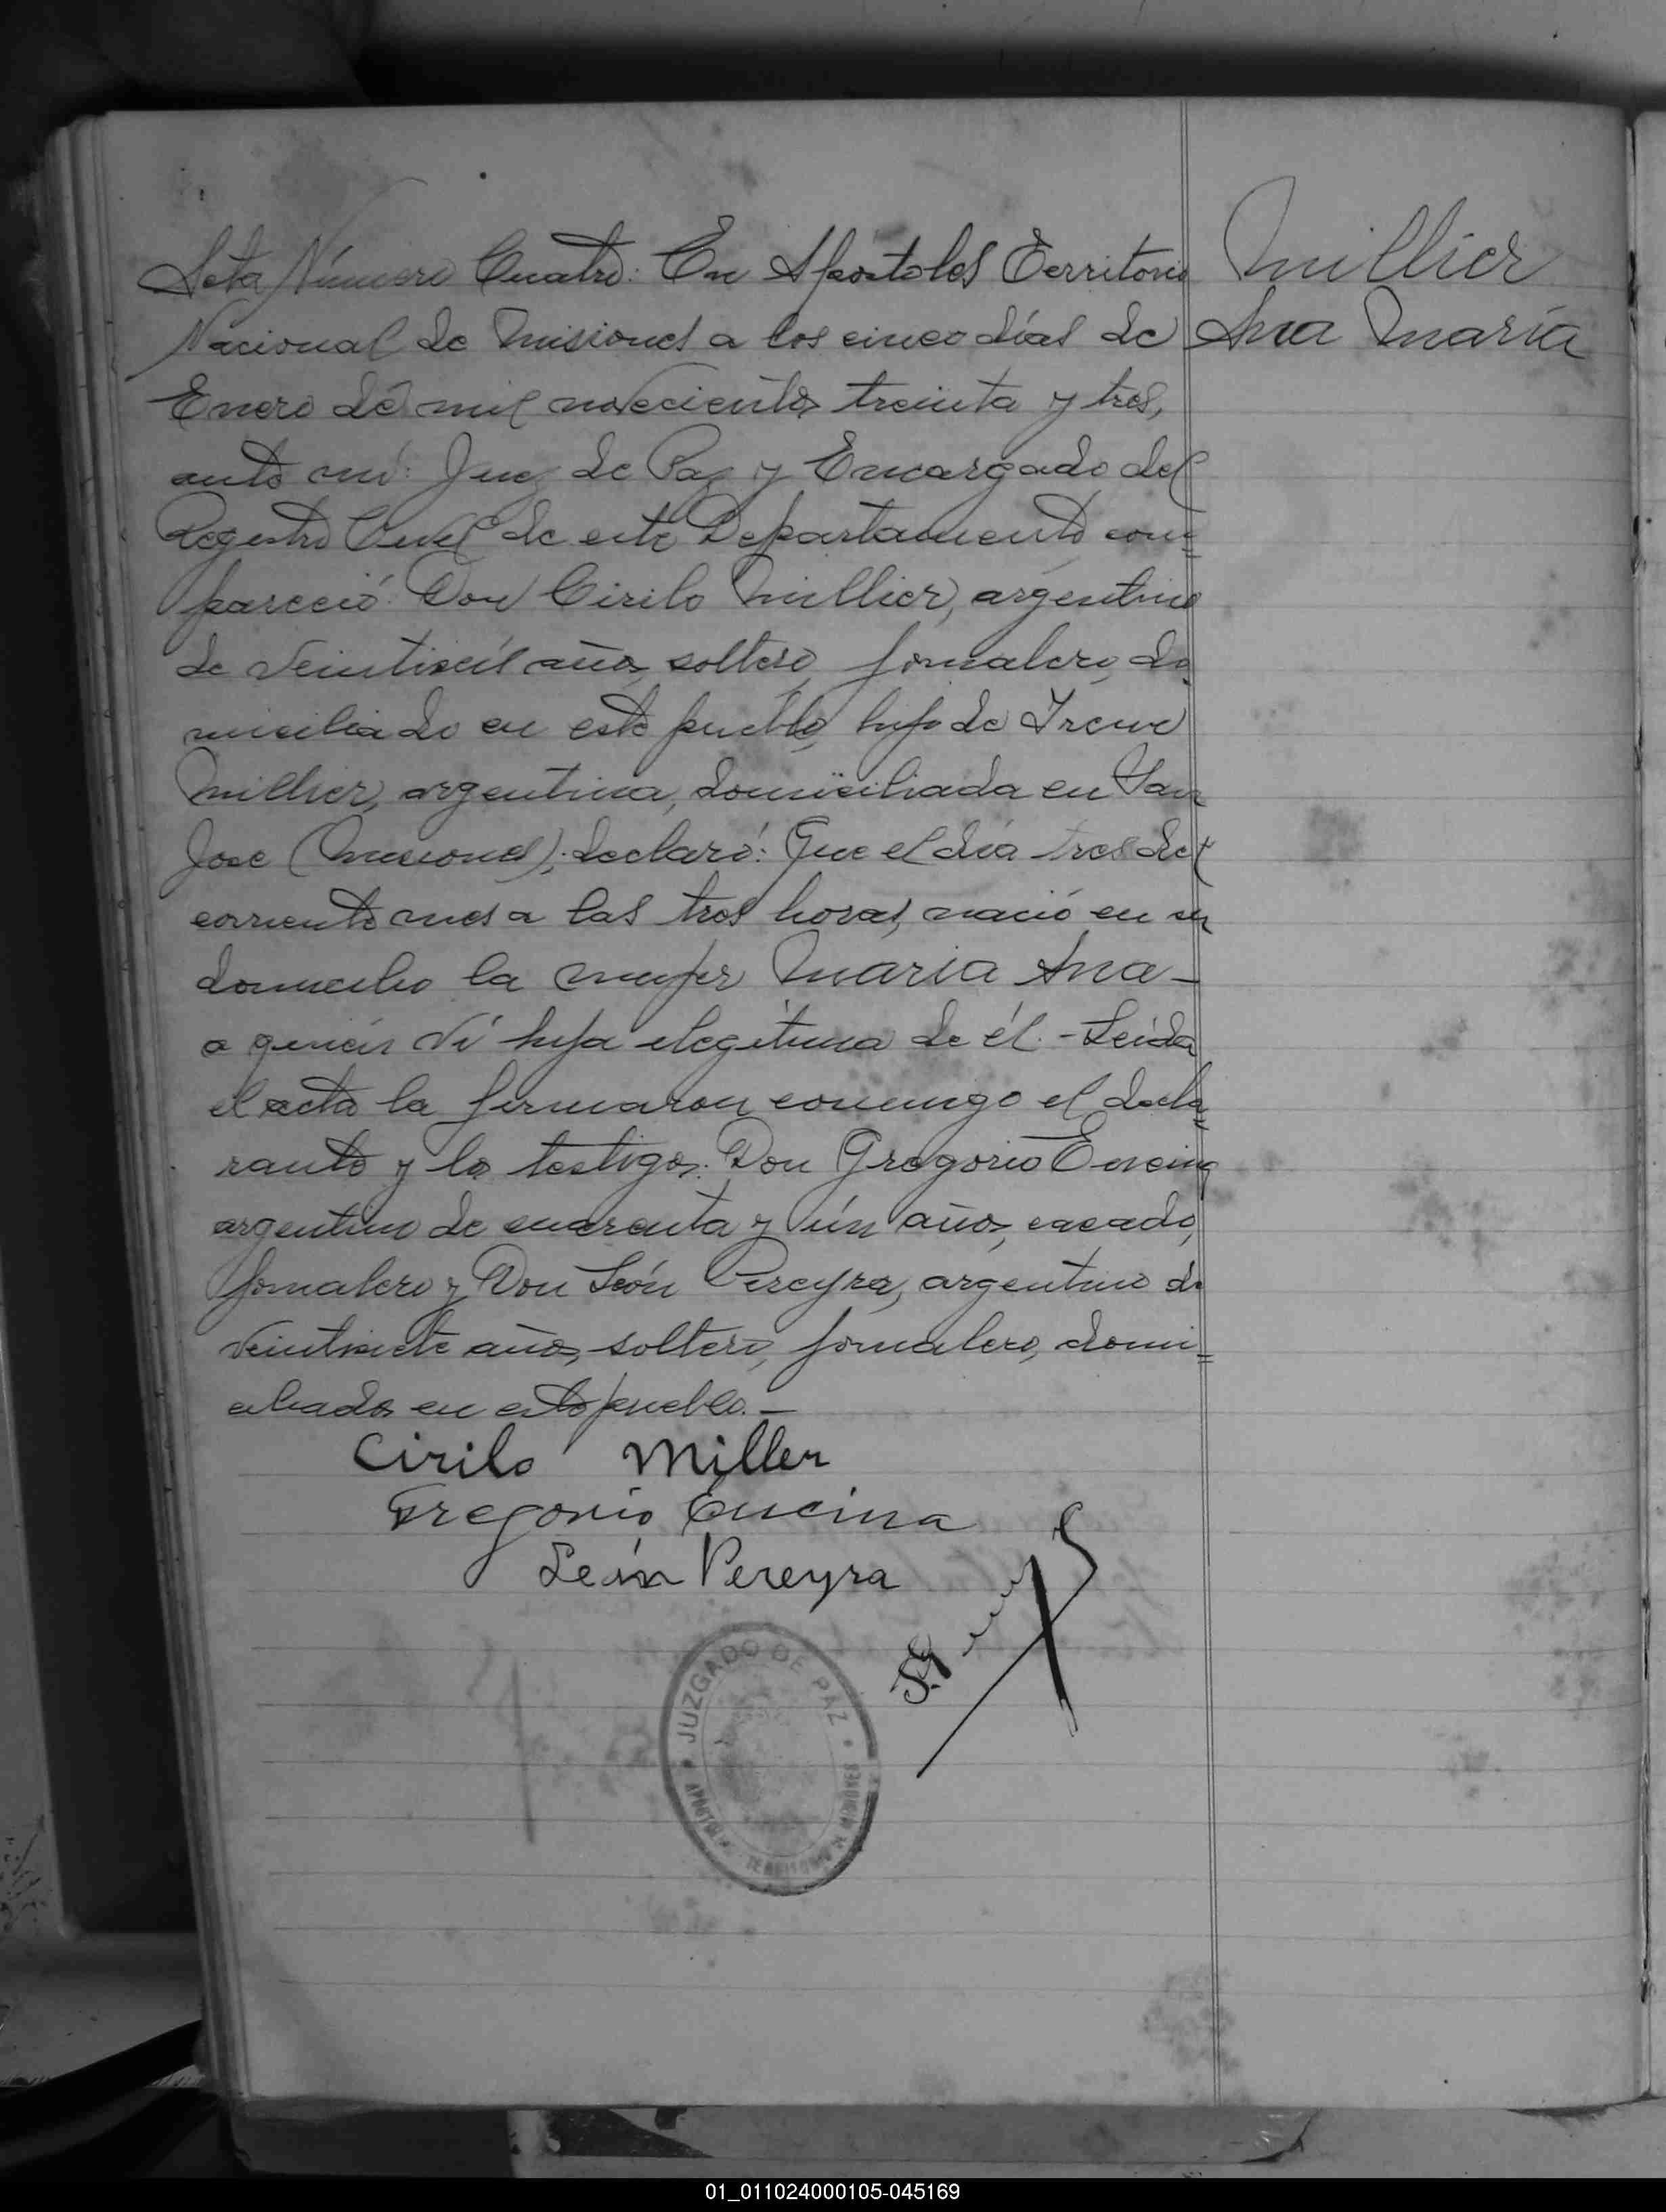 Acta Número Cuatro: En Apóstoles Territorio
Nacional de Misiones a los cinco días de
Enero de mil novecientos treinta y tres,
ante mí: Juez de Paz y Encargado del
Registro Civil de este Departamento com=
pareció: Don Cirilo Millier, argentino
de veintiseis años, soltero, jornalero, do
miciliado en este pueblo, hijo de Irene
Millier, argentina, domiciliada en San
José (Misiones); declaró: Que el día tres del
corriente mes a las tres horas, nació en su
domicilio la mujer María Ana—
a quien ví hija ilegítima de él.- Leída
el acta la firmaron conmigo el decla=
rante y los testigos: Don Gregorio Encina
argentino de cuarenta y ún años, casado,
jornalero y Don León Pereyra, argentino de
veintisiete años, soltero, jornalero, domi=
ciliados en este pueblo.—
Millier
Ana María
Cirilo Miller
Gregorio Encina
León Pereyra
JUZGADO DE PAZ
APOSTOLES TERRITORIO DE MISIONES
01_011024000105-045169